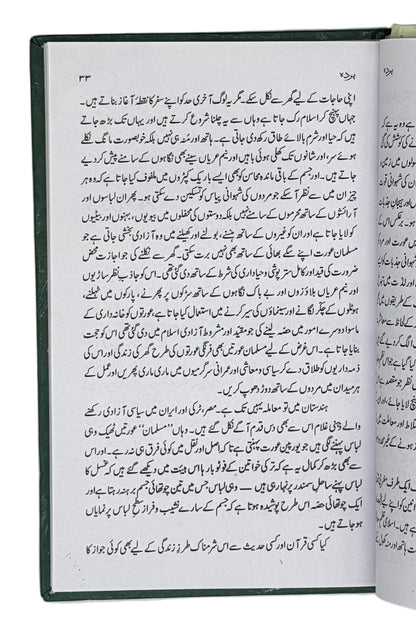 پردہ
۳۳
اپنی حاجات کے لیے گھر سے نکل سکے۔ مگر یہ لوگ آخری حد کو اپنے سفر کا نقطۂ آغاز بناتے ہیں۔
جہاں پہنچ کر اسلام رک جاتا ہے وہاں سے یہ چلنا شروع کرتے ہیں اور یہاں تک بڑھ جاتے
ہیں کہ حیا اور شرم بالائے طاق رکھ دی جاتی ہے۔ ہاتھ اور منہ ہی نہیں بلکہ خوبصورت مانگ نکلے
ہوئے سر، اور شانوں تک کھلی ہوئی بانہیں اور نیم عریاں سینے بھی نگاہوں کے سامنے پیش کر دیے
جاتے ہیں۔ اور جسم کے باقی ماندہ محاسن کو بھی ایسے باریک کپڑوں میں ملفوف کیا جاتا ہے کہ وہ ہر
چیز ان میں سے نظر آ سکے جو مردوں کی شہوانی پیاس کو تسکین دے سکتی ہو۔ پھر ان لباسوں اور
آرائشوں کے ساتھ محرموں کے سامنے نہیں بلکہ دوستوں کی محفلوں میں بیویوں، بہنوں اور بیٹیوں
کو لایا جاتا ہے اور ان کو غیروں کے ساتھ ہنسنے، بولنے اور کھیلنے میں وہ آزادی بخشی جاتی ہے جو
مسلمان عورت اپنے سگے بھائی کے ساتھ بھی نہیں برت سکتی۔ گھر سے نکلنے کی جو اجازت محض
ضرورت کی قید اور کامل ستر پوشی و حیاداری کی شرط کے ساتھ دی گئی تھی۔ اس کو جاذب نظر ساڑیوں
اور نیم عریاں بلاؤزوں اور بے باک نگاہوں کے ساتھ سڑکوں پر پھرنے، پارکوں میں ٹہلنے،
ہوٹلوں کے چکر لگانے اور سینماؤں کی سیر کرنے میں استعمال کیا جاتا ہے، عورتوں کو خانہ داری کے
ماسوا دوسرے امور میں حصہ لینے کی جو مقید اور مشروط آزادی اسلام میں دی گئی تھی اس کو حجت
بنایا جاتا ہے۔ اس غرض کے لیے مسلمان عورتیں بھی فرنگی عورتوں کی طرح گھر کی زندگی اور اس کی
ذمہ داریوں کو طلاق دے کر سیاسی و معاشی اور عمرانی سرگرمیوں میں ماری ماری پھریں اور عمل کے
ہر میدان میں مردوں کے ساتھ دوڑ دھوپ کریں۔
ہندستان میں تو معاملہ یہیں تک ہے۔ مصر، ترکی اور ایران میں سیاسی آزادی رکھنے
والے ذہنی غلام اس سے بھی دس قدم آگے نکل گئے ہیں۔ وہاں "مسلمان" عورتیں ٹھیک وہی
لباس پہننے لگی ہیں جو یورپین عورت پہنتی ہے تاکہ اصل اور نقل میں کوئی فرق ہی نہ رہے۔ اور اس
سے بھی بڑھ کر کمال یہ ہے کہ ترکی خواتین کے فوٹو بارہا اس ہیئت میں دیکھے گئے ہیں کہ غسل کا
لباس پہنے ساحل سمندر پر نہا رہی ہیں — وہی لباس جس میں تین چوتھائی جسم برہنہ رہتا ہے اور
ایک چوتھائی حصہ اس طرح پوشیدہ ہوتا ہے کہ جسم کے سارے نشیب و فراز سطح لباس پر نمایاں
ہو جاتے ہیں۔
کیا کسی قرآن اور کسی حدیث سے اس شرمناک طرز زندگی کے لیے بھی کوئی جواز کا